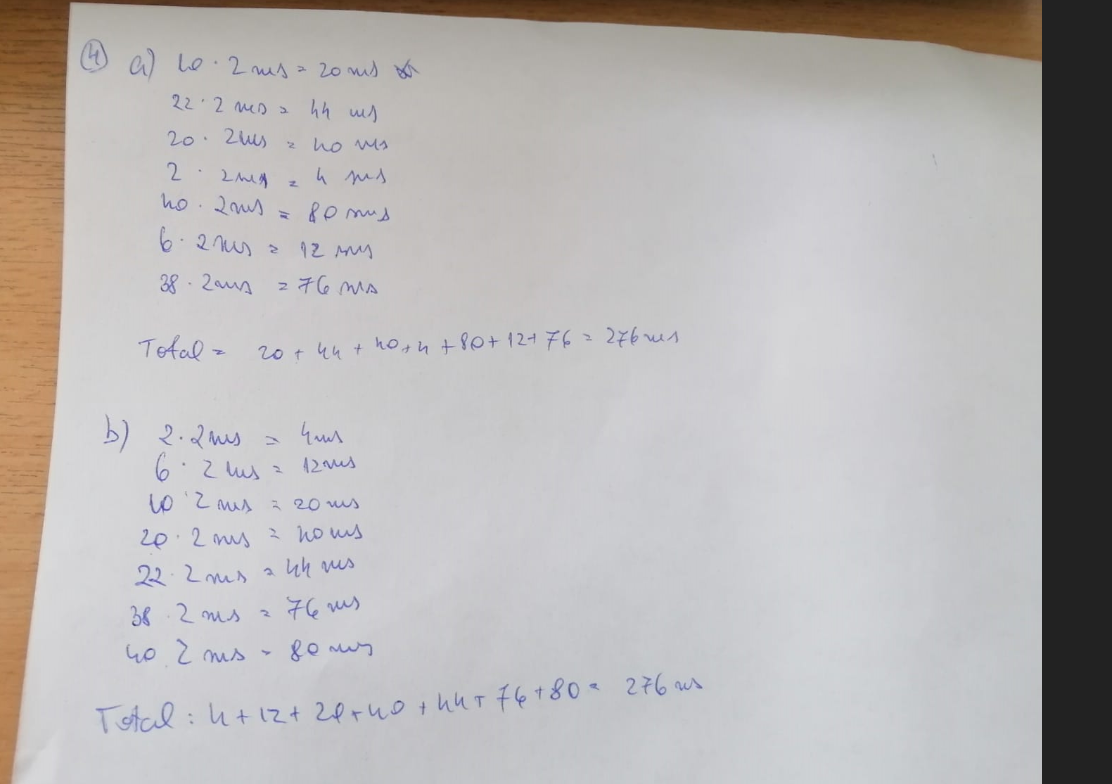 ④ a) 10 · 2 ms = 20 ms
22 · 2 ms = 44 ms
20 · 2ms = 40 ms
2 · 2ms = 4 ms
40 · 2ms = 80 ms
6 · 2ms = 12 ms
38 · 2ms = 76 ms
Total = 20 + 44 + 40 + 4 + 80 + 12 + 76 = 276 ms
b) 2 · 2ms = 4ms
6 · 2 ms = 12ms
10 · 2 ms = 20 ms
20 · 2 ms = 40 ms
22 · 2 ms = 44 ms
38 · 2 ms = 76 ms
40 · 2 ms = 80 ms
Total : 4 + 12 + 20 + 40 + 44 + 76 + 80 = 276 ms